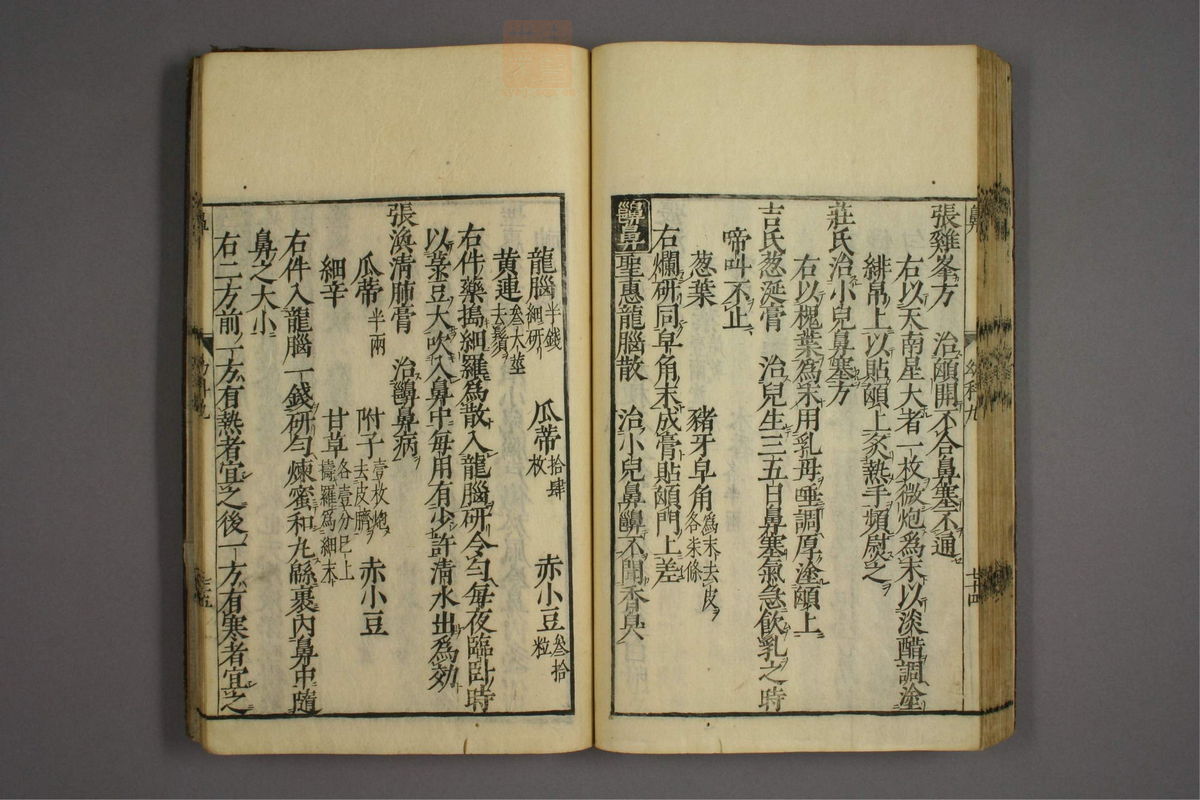 張雞峯方　治顖開不合鼻塞不通
右以天南星大者一枚微炮為末以淡醋調塗
緋帛上以貼顖上炙熱手頻熨之
莊氏治小兒鼻塞方
右以槐葉為末用乳母唾調厚塗顖上
吉氏葱涎膏　治兒生三五日鼻塞氣急飲乳之時
啼叫不止
葱葉　豬牙皁角為末去皮各柒條
右爛研同皁角末成膏貼顖門上差
齆鼻　聖惠龍腦散　治小兒鼻齆不聞香臭
龍腦半錢細研　瓜蒂拾肆枚　赤小豆叁拾粒
黄連叁大莖去鬚
右件藥搗細羅為散入龍腦研令勻每夜臨臥時
以菉豆大吹入鼻中每用有少許清水出為効
張渙清肺膏　治齆鼻病
瓜蒂半兩　附子壹枚炮去皮臍　赤小豆
細辛　甘草各壹分已上擣羅為細末
右件入龍腦一錢研勻煉蜜和丸緜裹內鼻中隨
鼻之大小
右二方前一方有熱者宜之後一方有寒者宜之
鼻
幼科九
七十四
鼻
幼科九